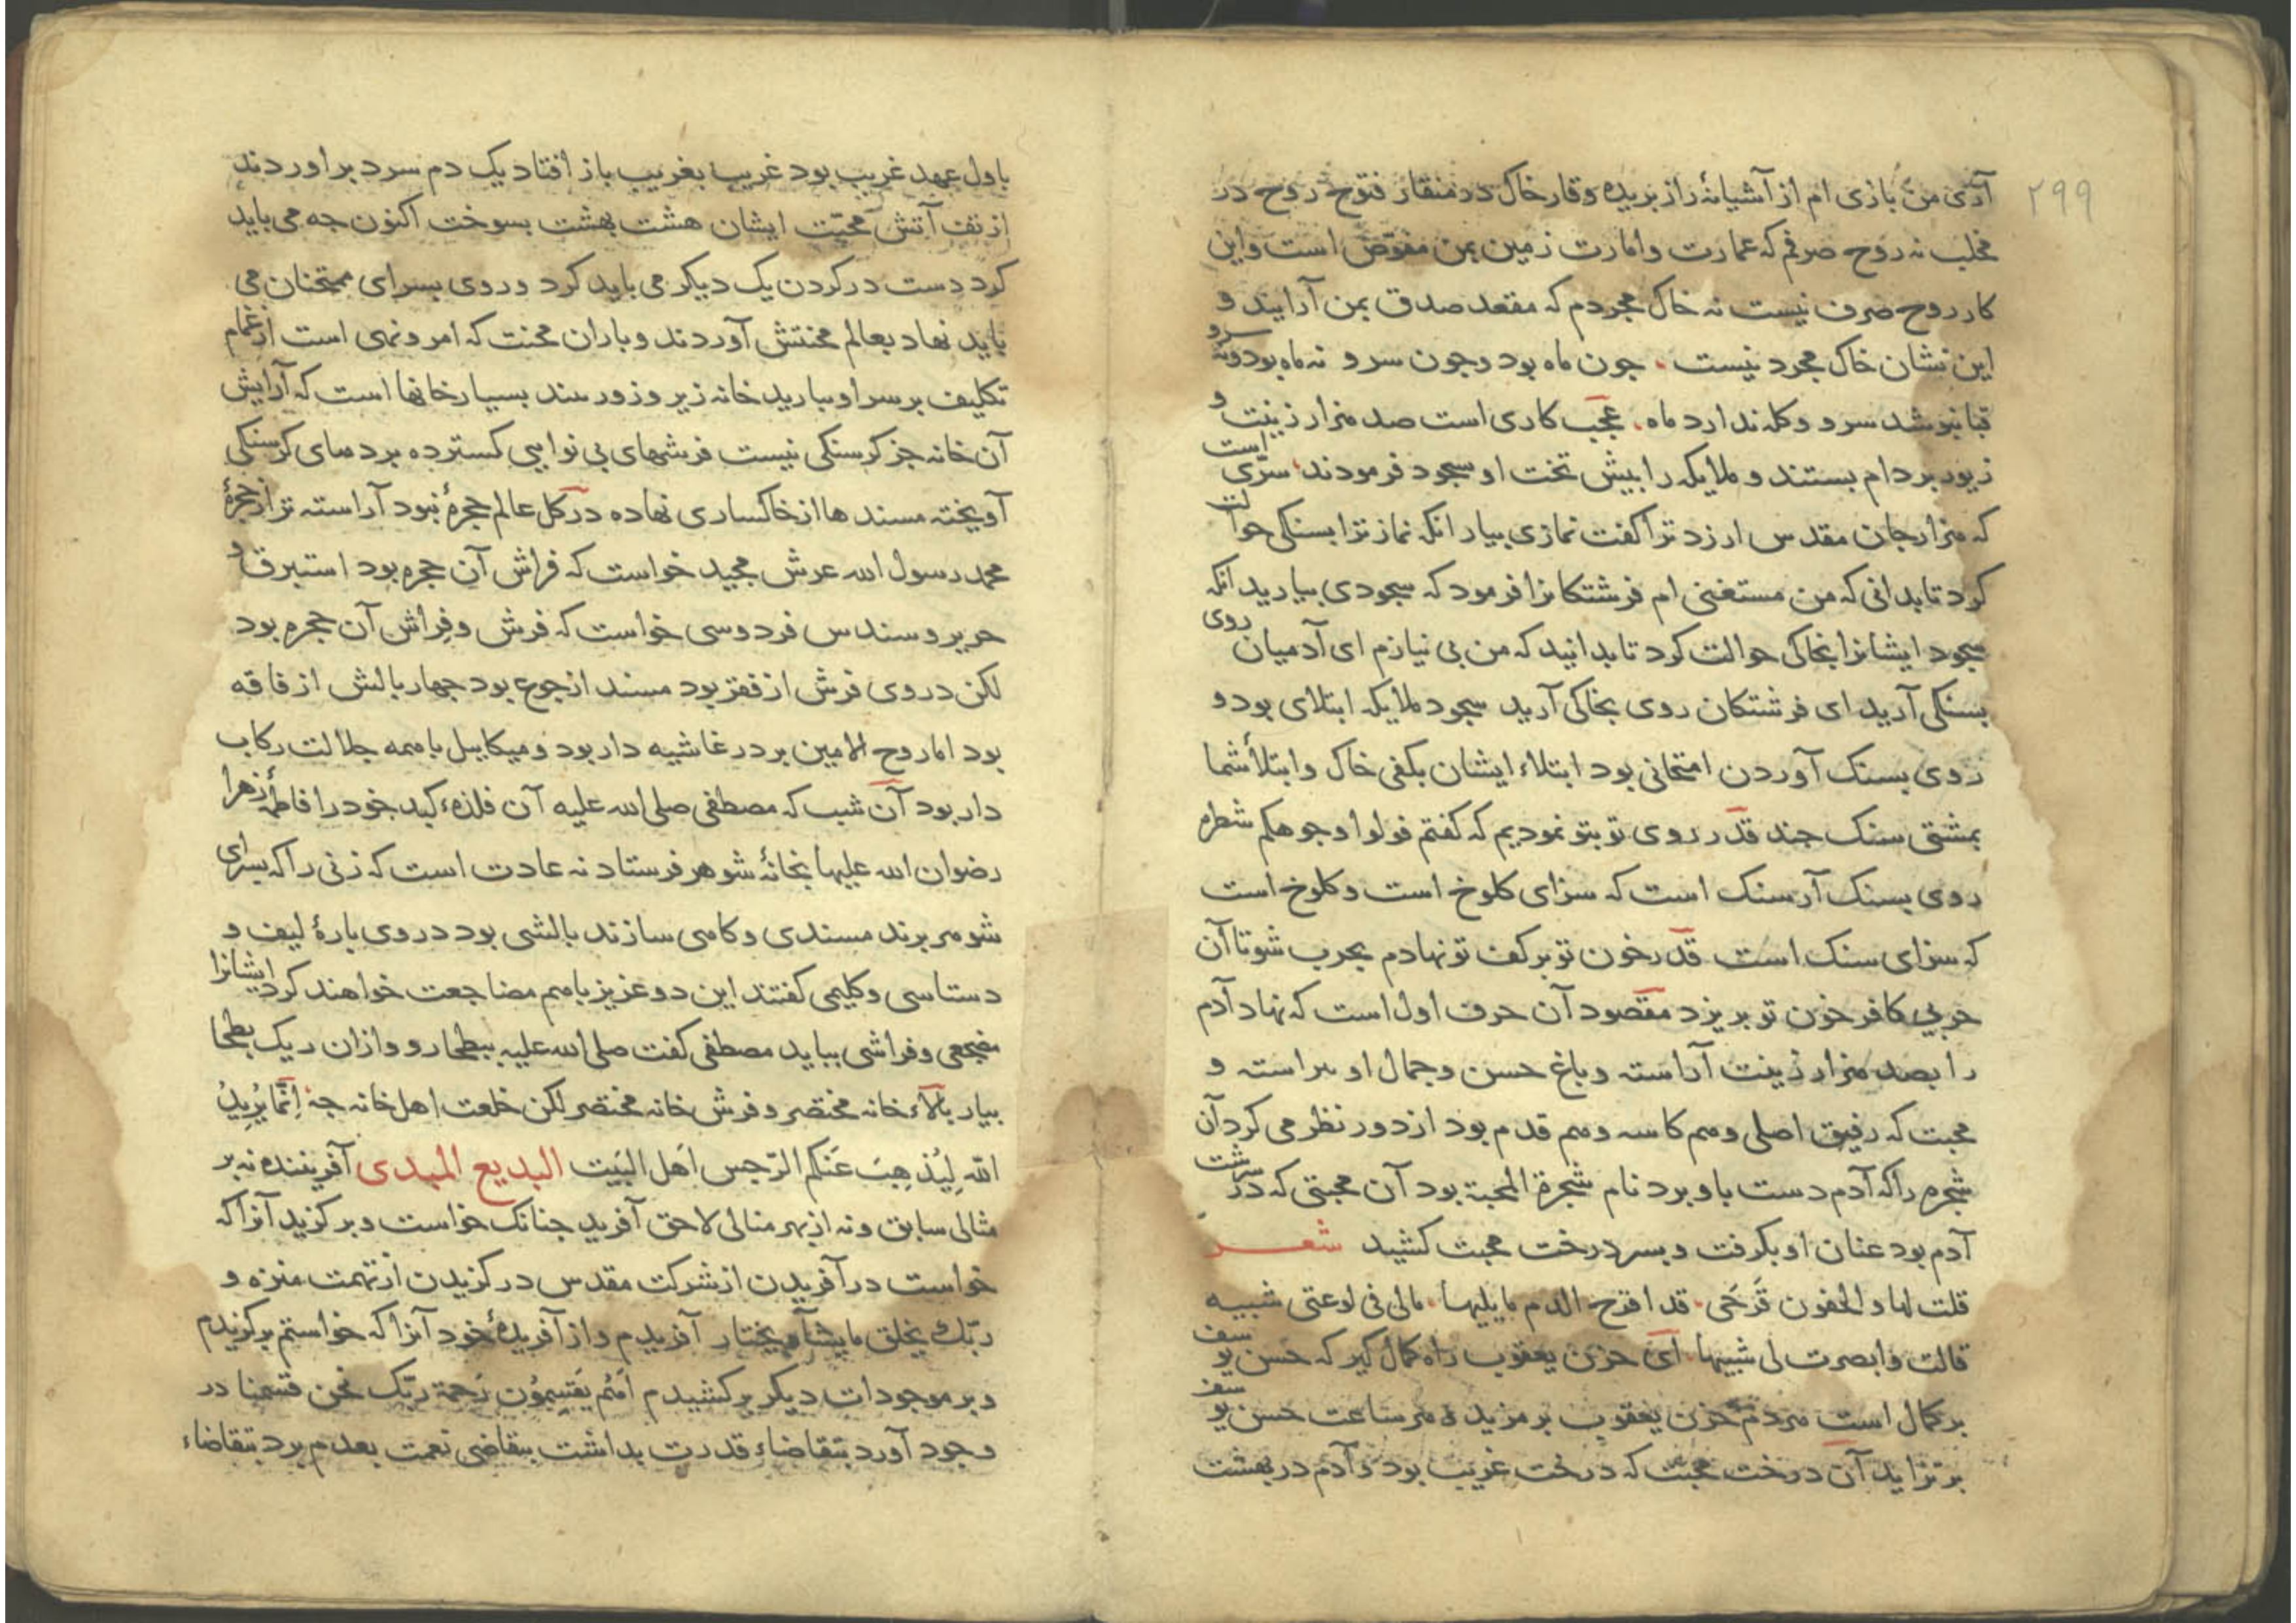 ۲۹۹
آری من بازی ام از آشیانهٔ راز بریده وقار خاک در منقار فتوح روح در
مخلب نه روح صرفم که عمارت وامارت زمین بمن مفوّض است واین
کار روح صرف نیست نه خاک مجردم که مقعد صدق بمن آرایند و
این نشان خاک مجرد نیست، جون ماه بود وجون سرو نه ماه بود ونه سرو
قبا نپوشد سرو وکله ندارد ماه، عجب کاری است صد هزار زینت و
زیور بر دام بستند و ملایکه را پیش تخت او سجود فرمودند، سرّی است
که هزار جان مقدس ارزد ترا کفت نمازی بیار انکه نماز ترا بسنکی حوالت
کرد تا بدانی که من مستغنی ام فرشتکانرا فرمود که سجودی بیارید انکه
سجود ایشانرا بخاکی حوالت کرد تا بدانید که من بی نیازم ای آدمیان روی
بسنکی آرید ای فرشتکان روی بخاکی آرید سجود ملایکه ابتلای بود و
روی بسنک آوردن امتحانی بود ابتلاء ایشان بکفی خاک وابتلأ شما
بمشتی سنک جند قدر روی تو بتو نمودیم که کفتم فولوا وجوهکم شطره
روی بسنک آر سنک است که سزای کلوخ است وکلوخ است
که سزای سنک است قدر خون تو بر کف تو نهادم بحرب شو تا آن
حربی کافر خون تو بریزد مقصود آن حرف اول است که نهاد آدم
را بصد هزار زینت آراسته وباغ حسن وجمال او براسته و
محبت که رفیق اصلی وهم کاسه وهم قدم بود از دور نظر می کرد آن
شجره را که آدم دست باو برد نام شجرة المحبة بود آن محبتی که در سرشت
آدم بود عنان او بکرفت وبسر درخت محبت کشید شعـر
قلت لها والجفون قرحی، قد اقرح الدم ما یلیها، مالی فی لوعتی شبیه
قالت وابصرت لی شبیها، ای حزن یعقوب راه کمال کیر که حسن یوسف
بر کمال است هر دم حزن یعقوب بر مزید و هر ساعت حسن یوسف
بر تزاید آن درخت محبت که درخت غریب بود و آدم در بهشت
باول عهد غریب بود غریب بغریب باز افتاد یک دم سرد براوردند
از تف آتش محبّت ایشان هشت بهشت بسوخت اکنون جه می باید
کرد دست در کردن یک دیکر می باید کرد وروی بسرای ممتحنان می
باید نهاد بعالم محنتش آوردند وباران محنت که امر ونهی است از غمام
تکلیف بر سر او ببارید خانه زیر وزور شد بسیار خانها است که آرایش
آن خانه جز کرسنکی نیست فرشهای بی نوایی کسترده پردهای کرسنکی
آویخته مسندها از خاکساری نهاده در کل عالم حجرهٔ نبود آراسته تر از حجرهٔ
محمد رسول الله عرش مجید خواست که فراش آن حجره بود استبرق و
حریر وسندس فردوسی خواست که فرش وفراش آن حجره بود
لکن در وی فرش از فقر بود مسند از جوع بود جهار بالش از فاقه
بود اما روح الامین بر در غاشیه دار بود ومیکاییل با همه جلالت رکاب
دار بود آن شب که مصطفی صلی الله علیه آن فلذهٔ کبد خود را فاطمهٔ زهرا
رضوان الله علیها بخانهٔ شوهر فرستاد نه عادت است که زنی را که بسرای
شوهر برند مسندی وکاهی سازند بالشی بود در وی پارهٔ لیف و
دستاسی وکلیمی کفتند این دو عزیز باهم مضاجعت خواهند کرد ایشانرا
مضجعی وفراشی بباید مصطفی کفت صلی الله علیه ببطحا رو وازان ریک بطحا
بیار بالاء خانه مختصر وفرش خانه مختصر لکن خلعت اهل خانه جه، اِنَّما یُریدُ
اللّه لِیُذهِبَ عَنکم الرّجس اَهل البَیت البدیع المبدی آفریننده نه بر
مثالی سابق ونه از بهر منالی لاحق آفرید جنانک خواست وبرکزید آنرا که
خواست در آفریدن از شرکت مقدس در کزیدن از تهمت منزه و
ربّک یخلق ما یشآء ویختار آفریدم واز آفریدهٔ خود آنرا که خواستم برکزیدم
وبر موجودات دیکر برکشیدم اَهُم یَقسِمُون رَحمة ربّک نحن قسمنا در
وجود آورد بتقاضاء قدرت بداشت بتقاضی نعمت بعدم برد بتقاضاء